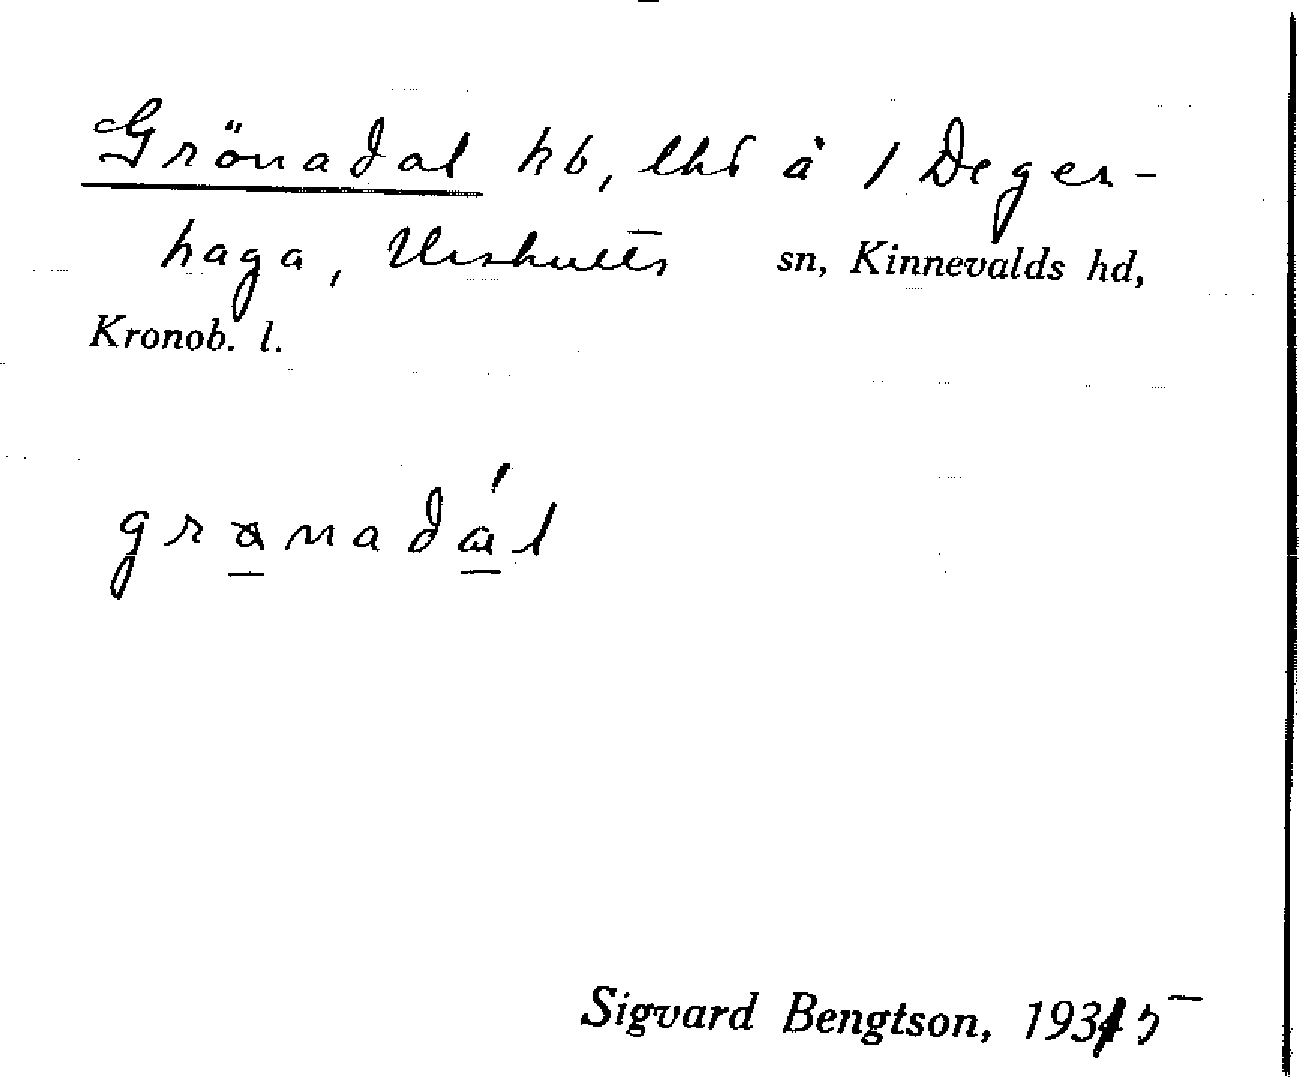 Grönadal hb, lht å 1 Deger-
haga, Urshults sn, Kinnevalds hd,
Kronob. l.
grønadál
Sigvard Bengtson, 1935